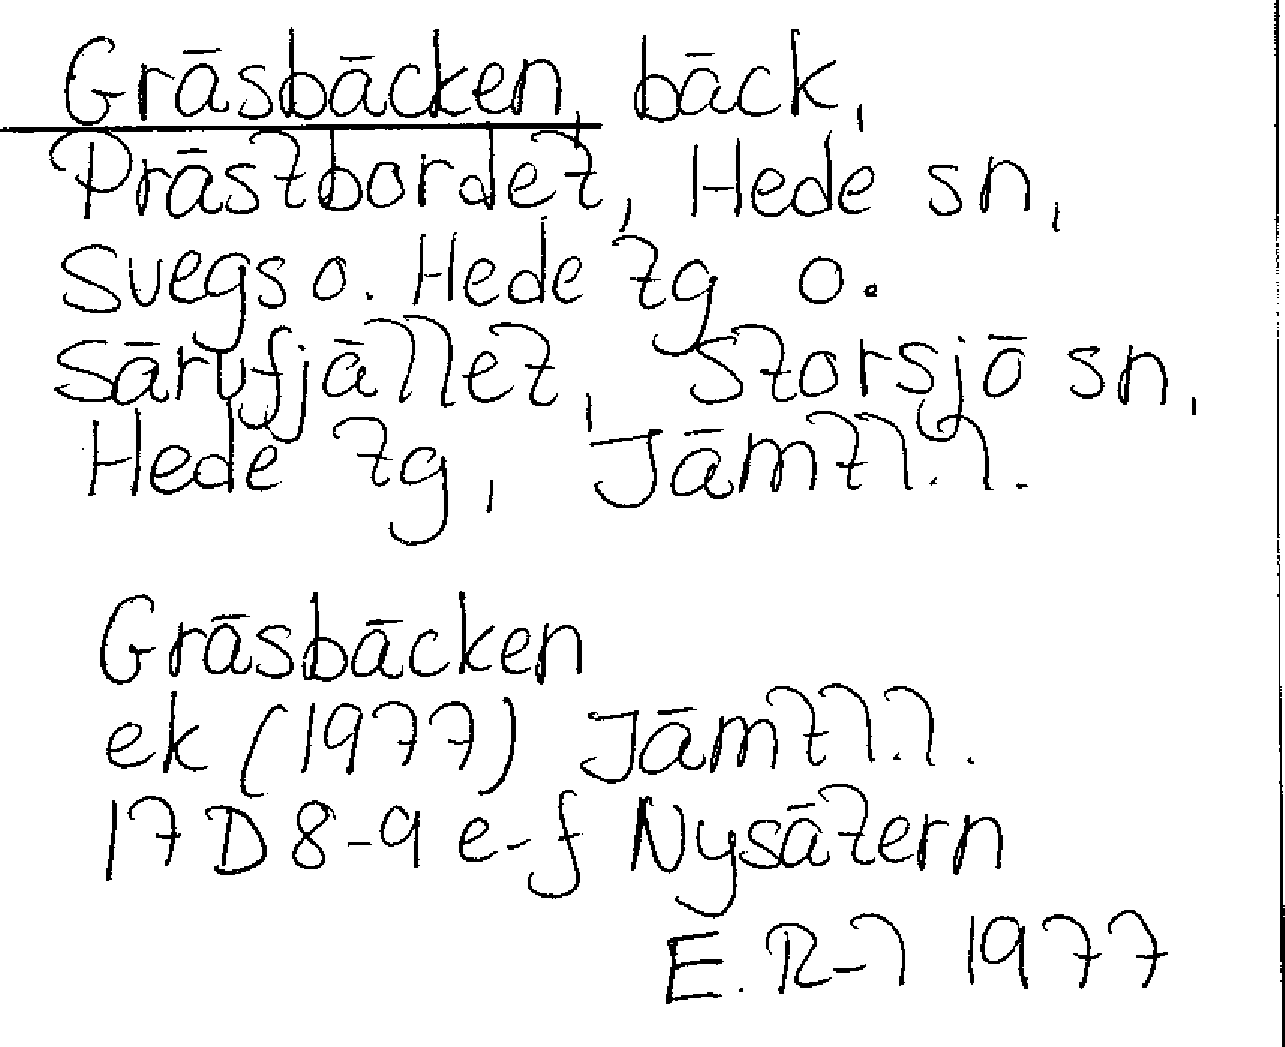 Gräsbäcken, bäck,
Prästbordet, Hede sn,
Svegs o. Hede tg o.
Särvfjället, Storsjö sn,
Hede tg, Jämtl.l.
Gräsbäcken
ek (1977) Jämtl.l.
17 D 8-9 e-f Nysätern
E. R-l 1977